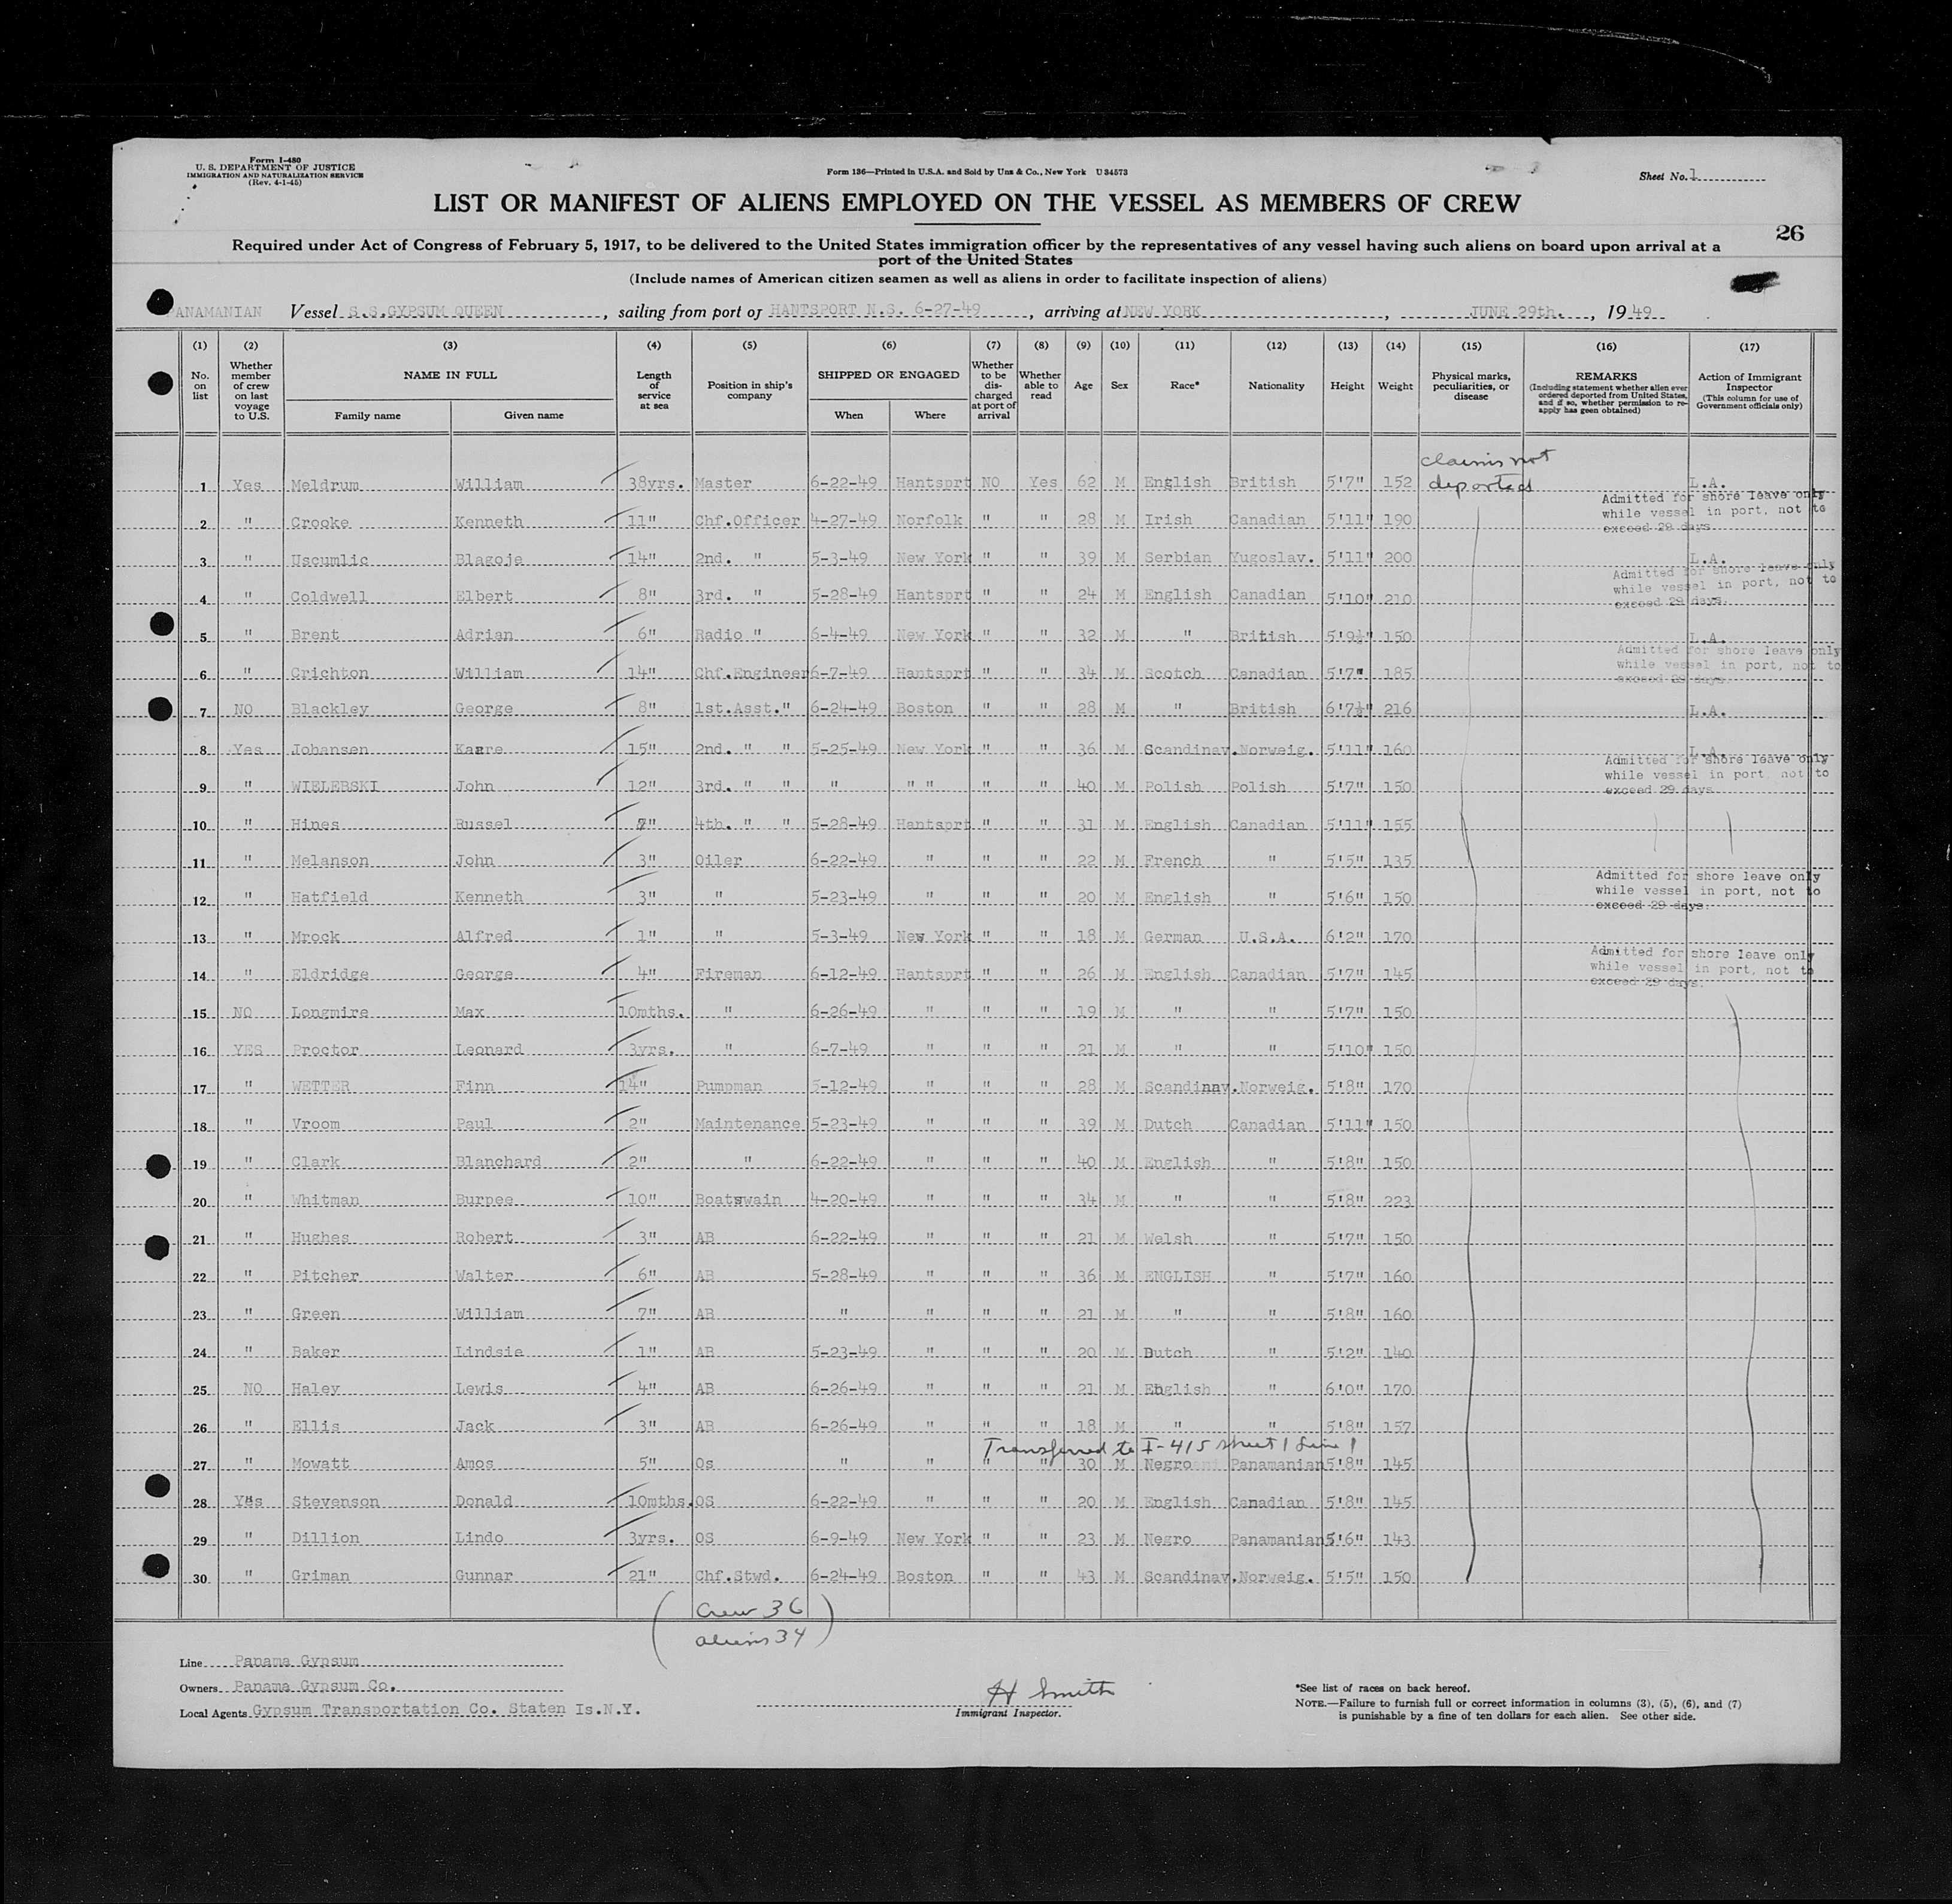 Form I-480
U. S. DEPARTMENT OF JUSTICE
IMMIGRATION AND NATURALIZATION SERVICE
(Rev. 4-1-45)
Form 136—Printed in U.S.A. and Sold by Unz & Co., New York U 34573
Sheet No. 1
LIST OR MANIFEST OF ALIENS EMPLOYED ON THE VESSEL AS MEMBERS OF CREW
26
Required under Act of Congress of February 5, 1917, to be delivered to the United States immigration officer by the representatives of any vessel having such aliens on board upon arrival at a
port of the United States
(Include names of American citizen seamen as well as aliens in order to facilitate inspection of aliens)
ANAMANIAN Vessel S.S.GYPSUM QUEEN, sailing from port of HANTSPORT N.S. 6-27-49, arriving at NEW YORK, JUNE 29th., 1949
(1) (2) (3) (4) (5) (6) (7) (8) (9) (10) (11) (12) (13) (14) (15) (16) (17)
No. on list
Whether member of crew on last voyage to U.S.
NAME IN FULL
Family name
Given name
Length of service at sea
Position in ship's company
SHIPPED OR ENGAGED
When
Where
Whether to be discharged at port of arrival
Whether able to read
Age
Sex
Race*
Nationality
Height
Weight
Physical marks, peculiarities, or disease
REMARKS
(Including statement whether alien ever ordered deported from United States, and if so, whether permission to re-apply has geen obtained)
Action of Immigrant Inspector
(This column for use of Government officials only)
claims not
1 Yes Meldrum William 38yrs. Master 6-22-49 Hantsprt NO Yes 62 M English British 5'7" 152 deported L.A.
Admitted for shore leave only
while vessel in port, not to
exceed 29 days.
2 " Crooke Kenneth 11" Chf.Officer 4-27-49 Norfolk " " 28 M Irish Canadian 5'11" 190
3 " Uscumlic Blagoje 14" 2nd. " 5-3-49 New York " " 39 M Serbian Yugoslav. 5'11" 200 L.A.
Admitted for shore leave only
while vessel in port, not to
exceed 29 days.
4 " Coldwell Elbert 8" 3rd. " 5-28-49 Hantsprt " " 24 M English Canadian 5'10" 210
5 " Brent Adrian 6" Radio " 6-4-49 New York " " 32 M " British 5'9½" 150 L.A.
Admitted for shore leave only
while vessel in port, not to
exceed 29 days.
6 " Crichton William 14" Chf.Engineer 6-7-49 Hantsprt " " 34 M Scotch Canadian 5'7" 185
7 NO Blackley George 8" 1st.Asst." 6-24-49 Boston " " 28 M " British 6'7½" 216 L.A.
8 Yes Johansen Kaare 15" 2nd. " " 5-25-49 New York " " 36 M Scandinav. Norweig. 5'11" 160 L.A.
Admitted for shore leave only
while vessel in port, not to
exceed 29 days.
9 " WIELEBSKI John 12" 3rd. " " " " " " " 40 M Polish Polish 5'7" 150
10 " Hines Russel 7" 4th. " " 5-28-49 Hantsprt " " 31 M English Canadian 5'11" 155
11 " Melanson John 3" Oiler 6-22-49 " " " 22 M French " 5'5" 135
Admitted for shore leave only
while vessel in port, not to
exceed 29 days.
12 " Hatfield Kenneth 3" " 5-23-49 " " " 20 M English " 5'6" 150
13 " Mrock Alfred 1" " 5-3-49 New York " " 18 M German U.S.A. 6'2" 170
Admitted for shore leave only
while vessel in port, not to
exceed 29 days.
14 " Eldridge George 4" Fireman 6-12-49 Hantsprt " " 26 M English Canadian 5'7" 145
15 NO Longmire Max 10mths. " 6-26-49 " " " 19 M " " 5'7" 150
16 YES Proctor Leonard 3yrs. " 6-7-49 " " " 21 M " " 5'10" 150
17 " WETTER Finn 14" Pumpman 5-12-49 " " " 28 M Scandinav. Norweig. 5'8" 170
18 " Vroom Paul 2" Maintenance 5-23-49 " " " 39 M Dutch Canadian 5'11" 150
19 " Clark Blanchard 2" " 6-22-49 " " " 40 M English " 5'8" 150
20 " Whitman Burpee 10" Boatswain 4-20-49 " " " 34 M " " 5'8" 223
21 " Hughes Robert 3" AB 6-22-49 " " " 21 M Welsh " 5'7" 150
22 " Pitcher Walter 6" AB 5-28-49 " " " 36 M ENGLISH " 5'7" 160
23 " Green William 7" AB " " " " 21 M " " 5'8" 160
24 " Baker Lindsie 1" AB 5-23-49 " " " 20 M Dutch " 5'2" 140
25 NO Haley Lewis 4" AB 6-26-49 " " " 21 M English " 6'0" 170
26 " Ellis Jack 3" AB 6-26-49 " " " 18 M " " 5'8" 157
Transferred to I-415 sheet 1 line 1
27 " Mowatt Amos 5" Os " " " " 30 M Negro Panamanian 5'8" 145
28 Yes Stevenson Donald 10mths. OS 6-22-49 " " " 20 M English Canadian 5'8" 145
29 " Dillion Lindo 3yrs. OS 6-9-49 New York " " 23 M Negro Panamanian 5'6" 143
30 " Griman Gunnar 21" Chf.Stwd. 6-24-49 Boston " " 43 M Scandinav. Norweig. 5'5" 150
(Crew 36
aliens 34)
Line Panama Gypsum
Owners Panama Gypsum Co.
Local Agents Gypsum Transportation Co. Staten Is.N.Y.
H Smith
Immigrant Inspector.
*See list of races on back hereof.
NOTE.—Failure to furnish full or correct information in columns (3), (5), (6), and (7)
is punishable by a fine of ten dollars for each alien. See other side.